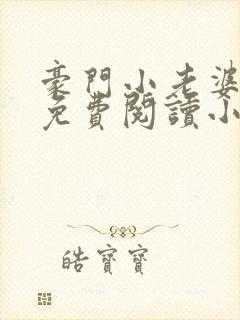 豪門小老婆
免費閱讀小
皓寶寶